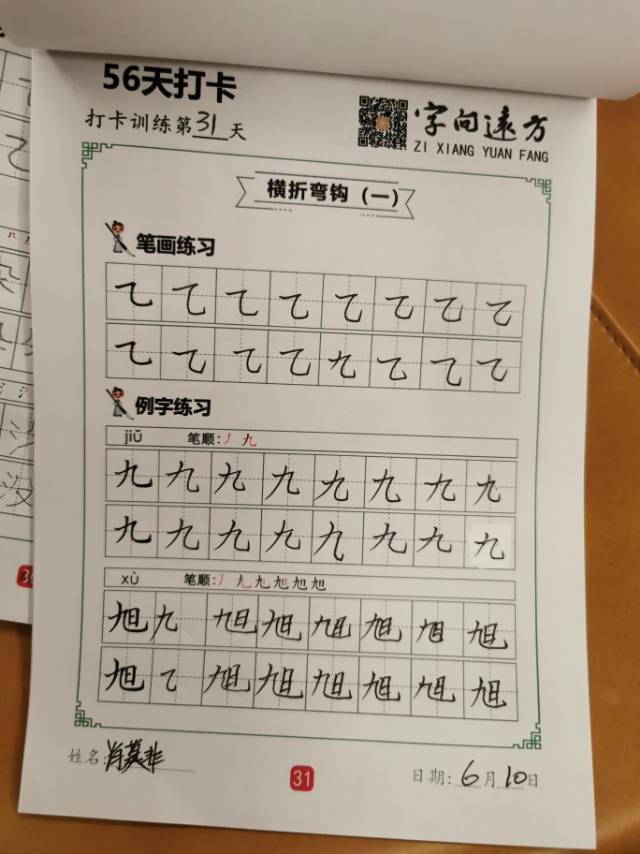 56天打卡
打卡训练第31天
字向远方
ZI XIANG YUAN FANG
横折弯钩（一）
笔画练习
乙 乙 乙 乙 乙 乙 乙 乙
乙 乙 乙 乙 九 乙 乙 乙
例字练习
jiǔ 笔顺：丿 九
九 九 九 九 九 九 九 九
九 九 九 九 九 九 九 九
xù 笔顺：丿 九 九 旭 旭 旭
旭 九 旭 旭 旭 旭 旭 旭
旭 乙 旭 旭 旭 旭 旭 旭
姓名：肖
31
日期：6月10日
没